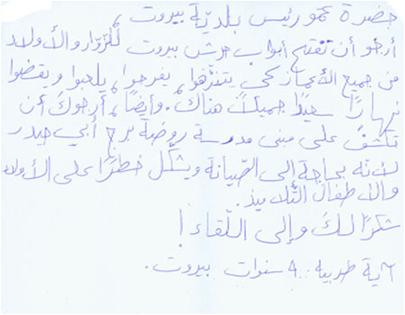 حضرة عمو رئيس بلديّة بيروت،
أرجو أن تفتح أبواب حرش بيروت للزوّار والأولاد
من جميع الأعمار كي يتنزّهوا، يفرحوا، يلعبوا ويقضوا
نهارًا سعيدًا جميلًا هناك. وأيضًا، أرجوك أن
تكشف على مبنى مدرسة روضة برج أبي حيدر
لأنّه بحاجة إلى الصّيانة ويشكّل خطرًا على الأولاد
والأطفال التّلاميذ.
شكرًا لك وإلى اللّقاء!
آية طربيه ٩ سنوات بيروت.